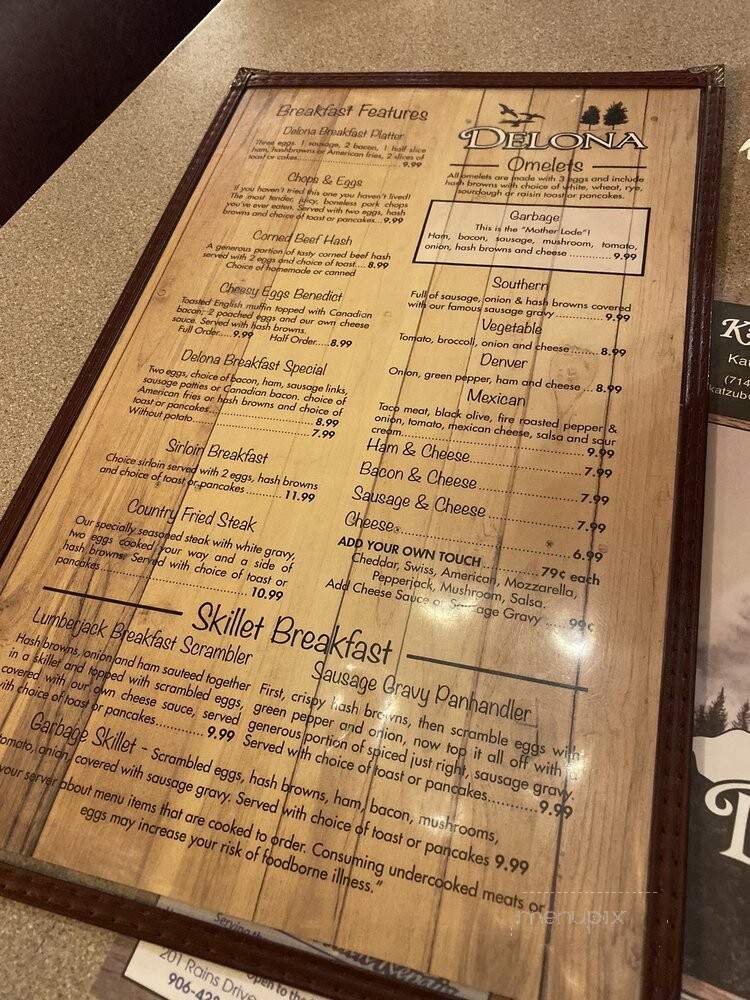 Breakfast Features
Delona Breakfast Platter
Three eggs, 1 sausage, 2 bacon, 1 half slice
ham, hashbrowns or American fries, 2 slices of
toast or cakes............9.99
Chops & Eggs
If you haven't tried this one you haven't lived!
The most tender, juicy, boneless pork chops
you've ever eaten. Served with two eggs, hash
browns and choice of toast or pancakes...9.99
Corned Beef Hash
A generous portion of tasty corned beef hash
served with 2 eggs and choice of toast.... 8.99
Choice of homemade or canned
Cheesy Eggs Benedict
Toasted English muffin topped with Canadian
bacon, 2 poached eggs and our own cheese
sauce. Served with hash browns.
Full Order.....9.99 Half Order.....8.99
Delona Breakfast Special
Two eggs, choice of bacon, ham, sausage links,
sausage patties or Canadian bacon, choice of
American fries or hash browns and choice of
toast or pancakes............ 8.99
Without potato............ 7.99
Sirloin Breakfast
Choice sirloin served with 2 eggs, hash browns
and choice of toast or pancakes .......... 11.99
Country Fried Steak
Our specially seasoned steak with white gravy,
two eggs cooked your way and a side of
hash browns. Served with choice of toast or
pancakes............ 10.99
DELONA
Omelets
All omelets are made with 3 eggs and include
hash browns with choice of white, wheat, rye,
sourdough or raisin toast or pancakes.
Garbage
This is the "Mother Lode"!
Ham, bacon, sausage, mushroom, tomato,
onion, hash browns and cheese ............ 9.99
Southern
Full of sausage, onion & hash browns covered
with our famous sausage gravy ............ 9.99
Vegetable
Tomato, broccoli, onion and cheese....... 8.99
Denver
Onion, green pepper, ham and cheese ... 8.99
Mexican
Taco meat, black olive, fire roasted pepper &
onion, tomato, mexican cheese, salsa and sour
cream............ 9.99
Ham & Cheese............ 7.99
Bacon & Cheese............ 7.99
Sausage & Cheese............ 7.99
Cheese............ 6.99
ADD YOUR OWN TOUCH ............ 79¢ each
Cheddar, Swiss, American, Mozzarella,
Pepperjack, Mushroom, Salsa.
Add Cheese Sauce or Sausage Gravy ..... 99¢
Skillet Breakfast
Lumberjack Breakfast Scrambler
Hash browns, onion and ham sauteed together
in a skillet and topped with scrambled eggs,
covered with our own cheese sauce, served
with choice of toast or pancakes............ 9.99
Sausage Gravy Panhandler
First, crispy hash browns, then scramble eggs with
green pepper and onion, now top it all off with a
generous portion of spiced just right, sausage gravy.
Served with choice of toast or pancakes............9.99
Garbage Skillet - Scrambled eggs, hash browns, ham, bacon, mushrooms,
tomato, onion, covered with sausage gravy. Served with choice of toast or pancakes 9.99
your server about menu items that are cooked to order. Consuming undercooked meats or
eggs may increase your risk of foodborne illness."
menupix
Serving the
Open to the
201 Rains Drive
906-428
(714
katzub